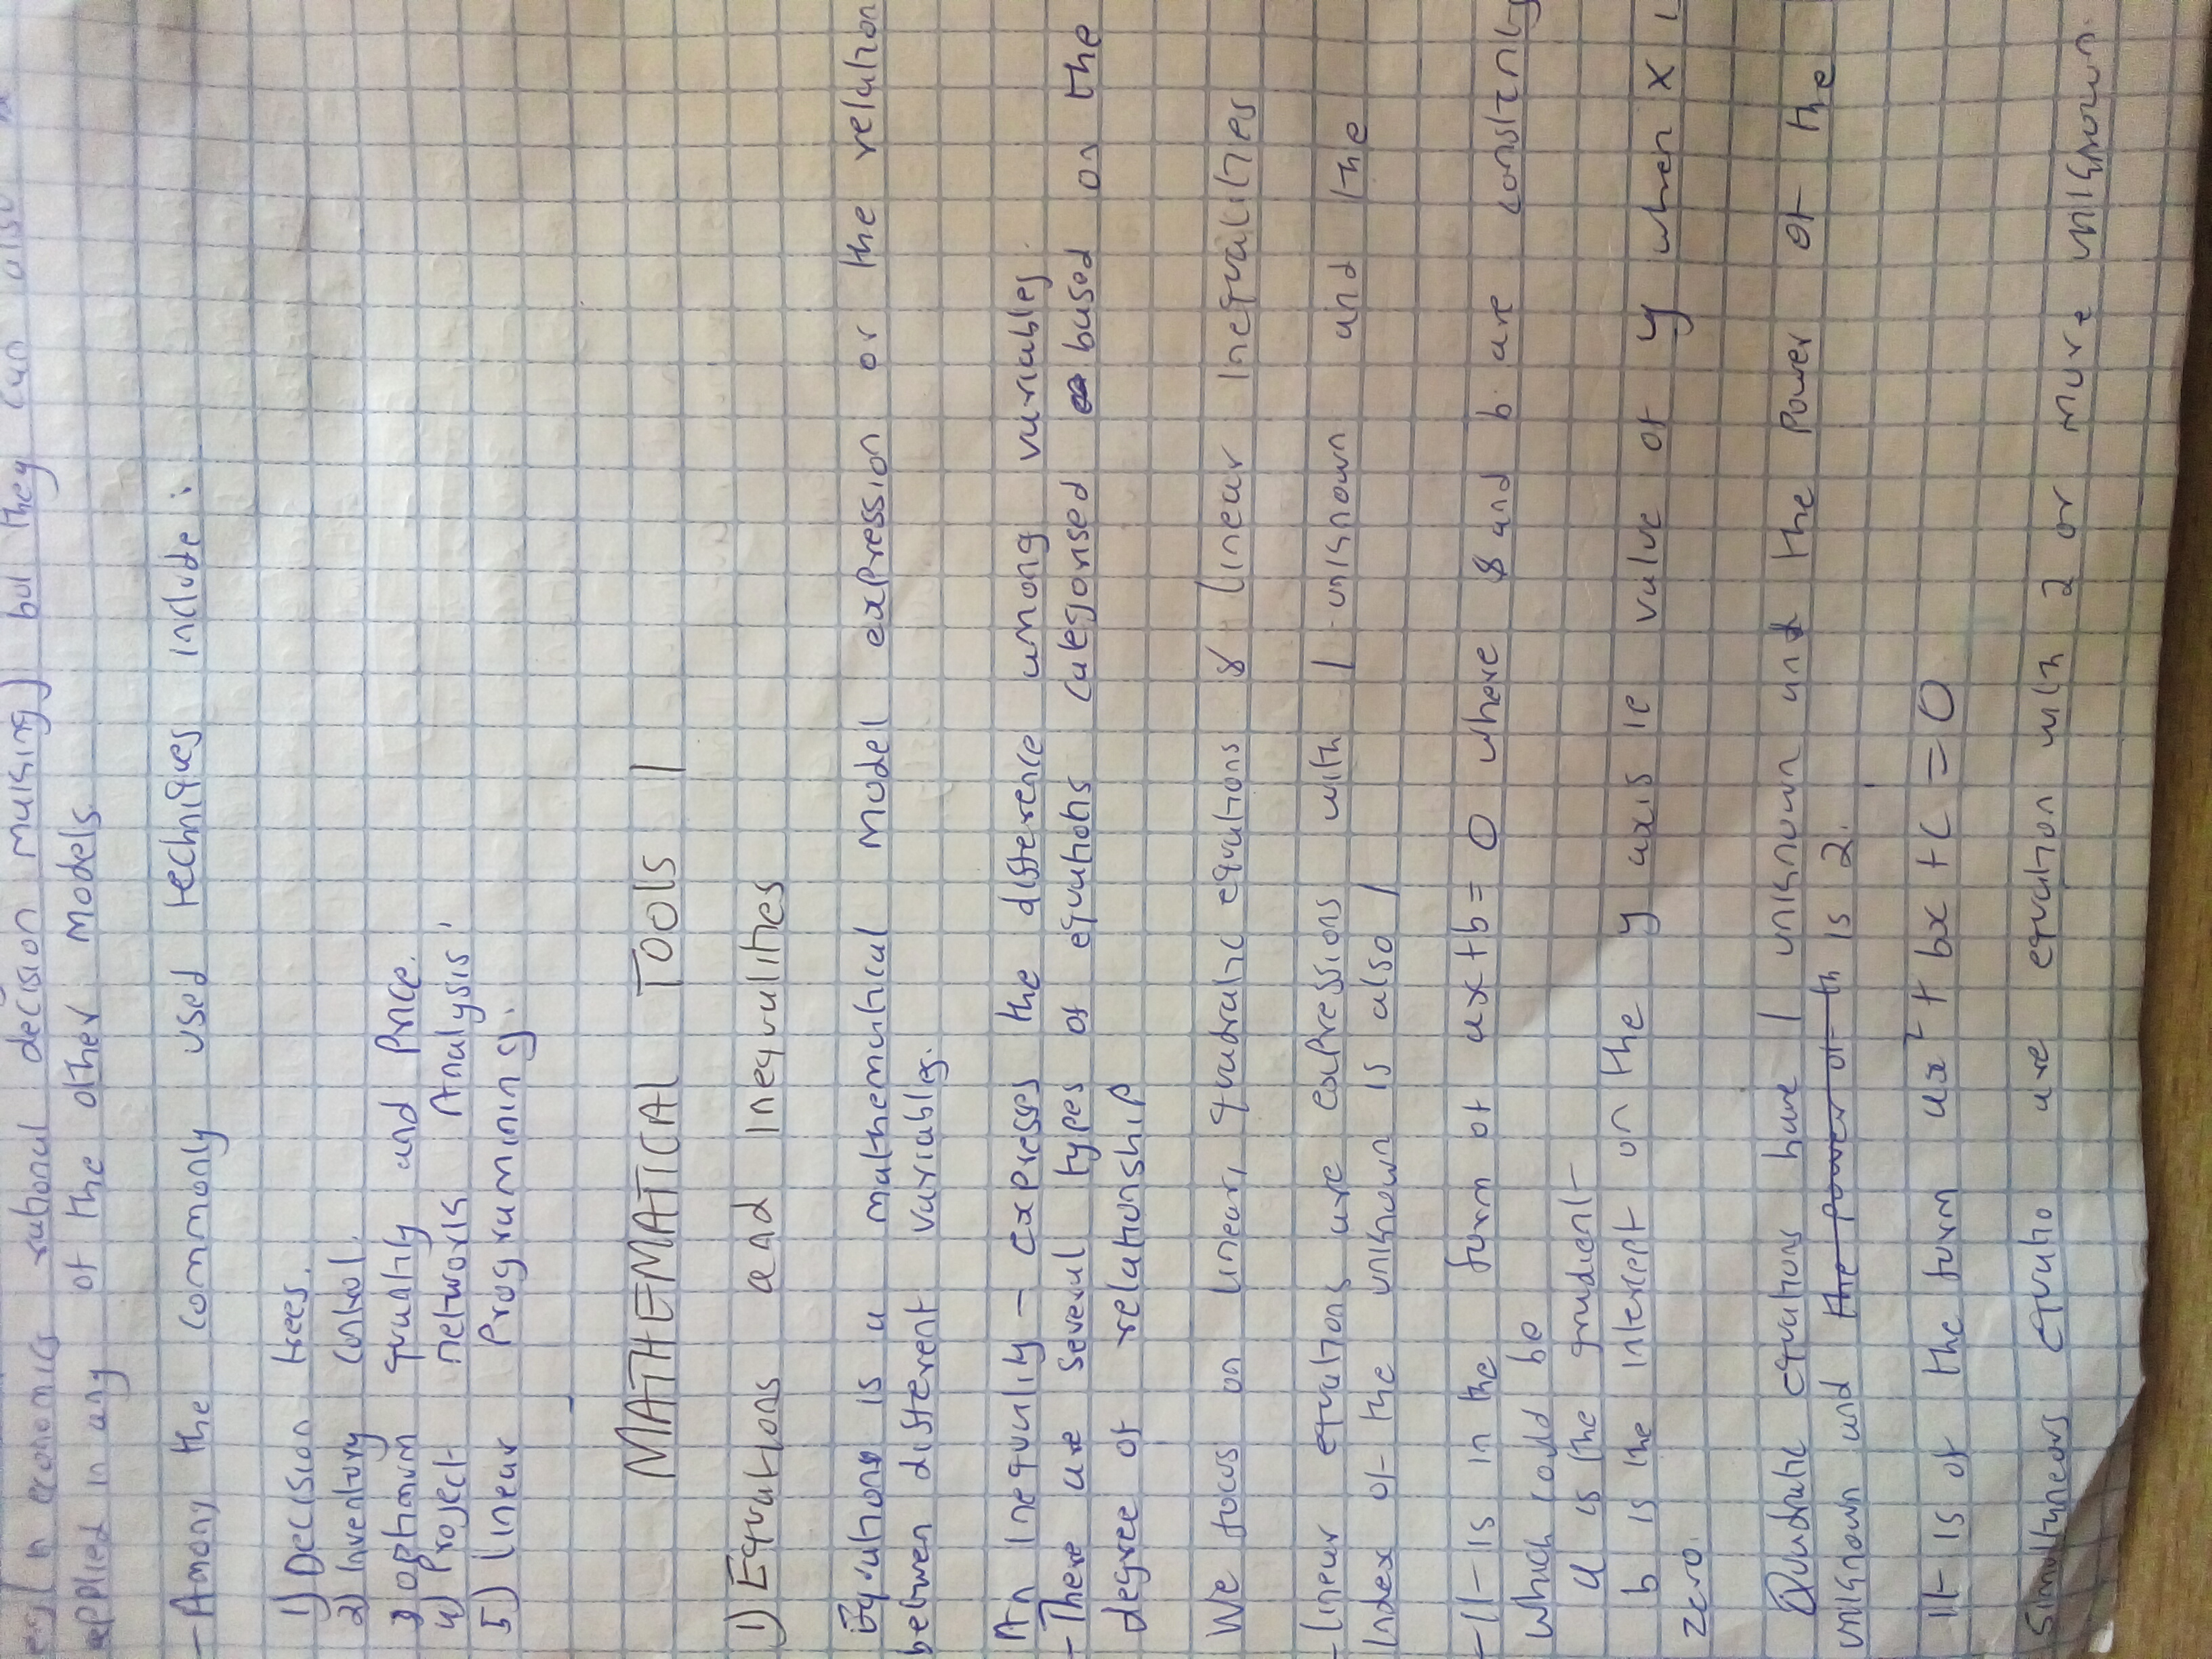 economics rational decision making) but they can also
applied in any of the other models.
- Among the commonly used techniques include :
1) Decision trees.
2) Inventory control.
3 optimum quantity and Price.
4) Project network Analysis
5) linear Programming.
MATHEMATICAL TOOLS 1
1) Equations and Inequalities
Equations is a mathematical model expression or the relation
betwen different variables.
An Inequality - expresses the difference among variables.
- There are several types of equations categorised based on the
degree of relationship
We focus on linear, quadratic equations & linear Inequalities
- linear equations are expressions with 1 unknown and the
Index of the unknown is also 1
- It is in the form of ax+b= 0 where & and b are constants
which could be
a is the gradient
b is the intercept on the y axis ie value of y when x i
zero.
Quadratic equations have 1 unknown and the power of the
unknown and the power of th is 2.
It is of the form ax² + bx + c = 0
Simultaneous equatio are equation with 2 or more unknown.